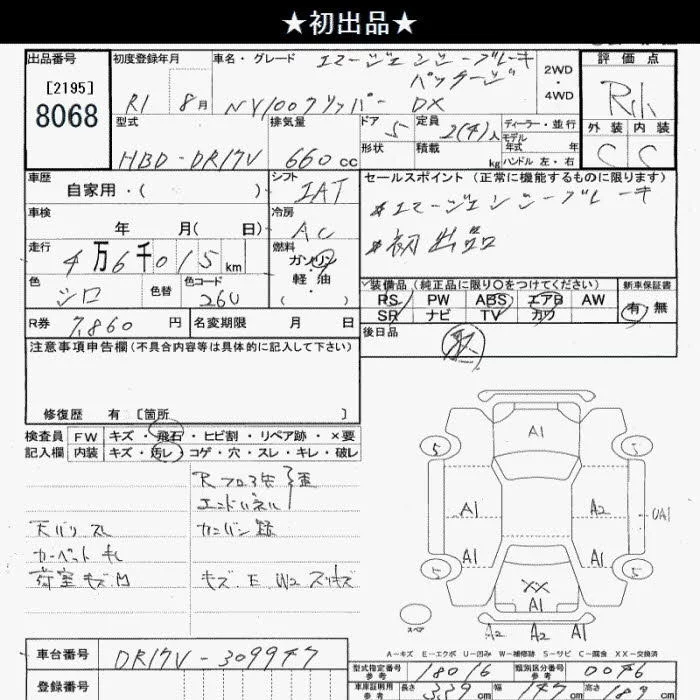 ★初出品★
出品番号
[2195]
8068
初度登録年月
R1 8月
車名・グレード
エマージェンシーブレーキ
パッケージ
NV100クリッパー DX
2WD
・
4WD
評価点
外装 内装
C C
型式
HBD-DR17V
排気量
660cc
ドア 5
形状
定員 2(4)人
積載 kg
ディーラー・並行
モデル
年式 年
ハンドル 左・右
車歴
自家用・( )
シフト
IAT
車検
年 月( 日)
冷房
AC
走行
4万6千015km
燃料
ガソリン
軽油
・
( )
色
シロ
色替
色コード
26U
R券 7,860円
名変期限 月 日
セールスポイント(正常に機能するものに限ります)
*エマージェンシーブレーキ
*初出品
装備品(純正品に限り〇をつけてください)
PS PW ABS エアB AW
SR ナビ TV カワ
新車保証書
有・無
後日品
取
注意事項申告欄(不具合内容等は具体的に記入して下さい)
修復歴 有 [箇所 ]
検査員
記入欄
FW キズ・飛石・ヒビ割・リペア跡・×要
内装 キズ・汚レ・コゲ・穴・スレ・キレ・破レ
Rフロア歪
エンドパネル
天バリ スレ
カンバン跡
カーペット キレ
荷室 キズ凹
キズ E W2 スリキズ
A1
5 5
A1 A2 UA1
A1 A1
5 5
XX
A1
スペア
A2 A2 A1
A-キズ E-エクボ U-凹み W-補修跡 S-サビ C-腐食 XX-交換済
車台番号 DR17V-309947
登録番号
型式指定番号
参考
18016
類別区分番号
参考
0046
車庫証明用
参考
長さ 339cm
幅 147cm
高さ 189cm